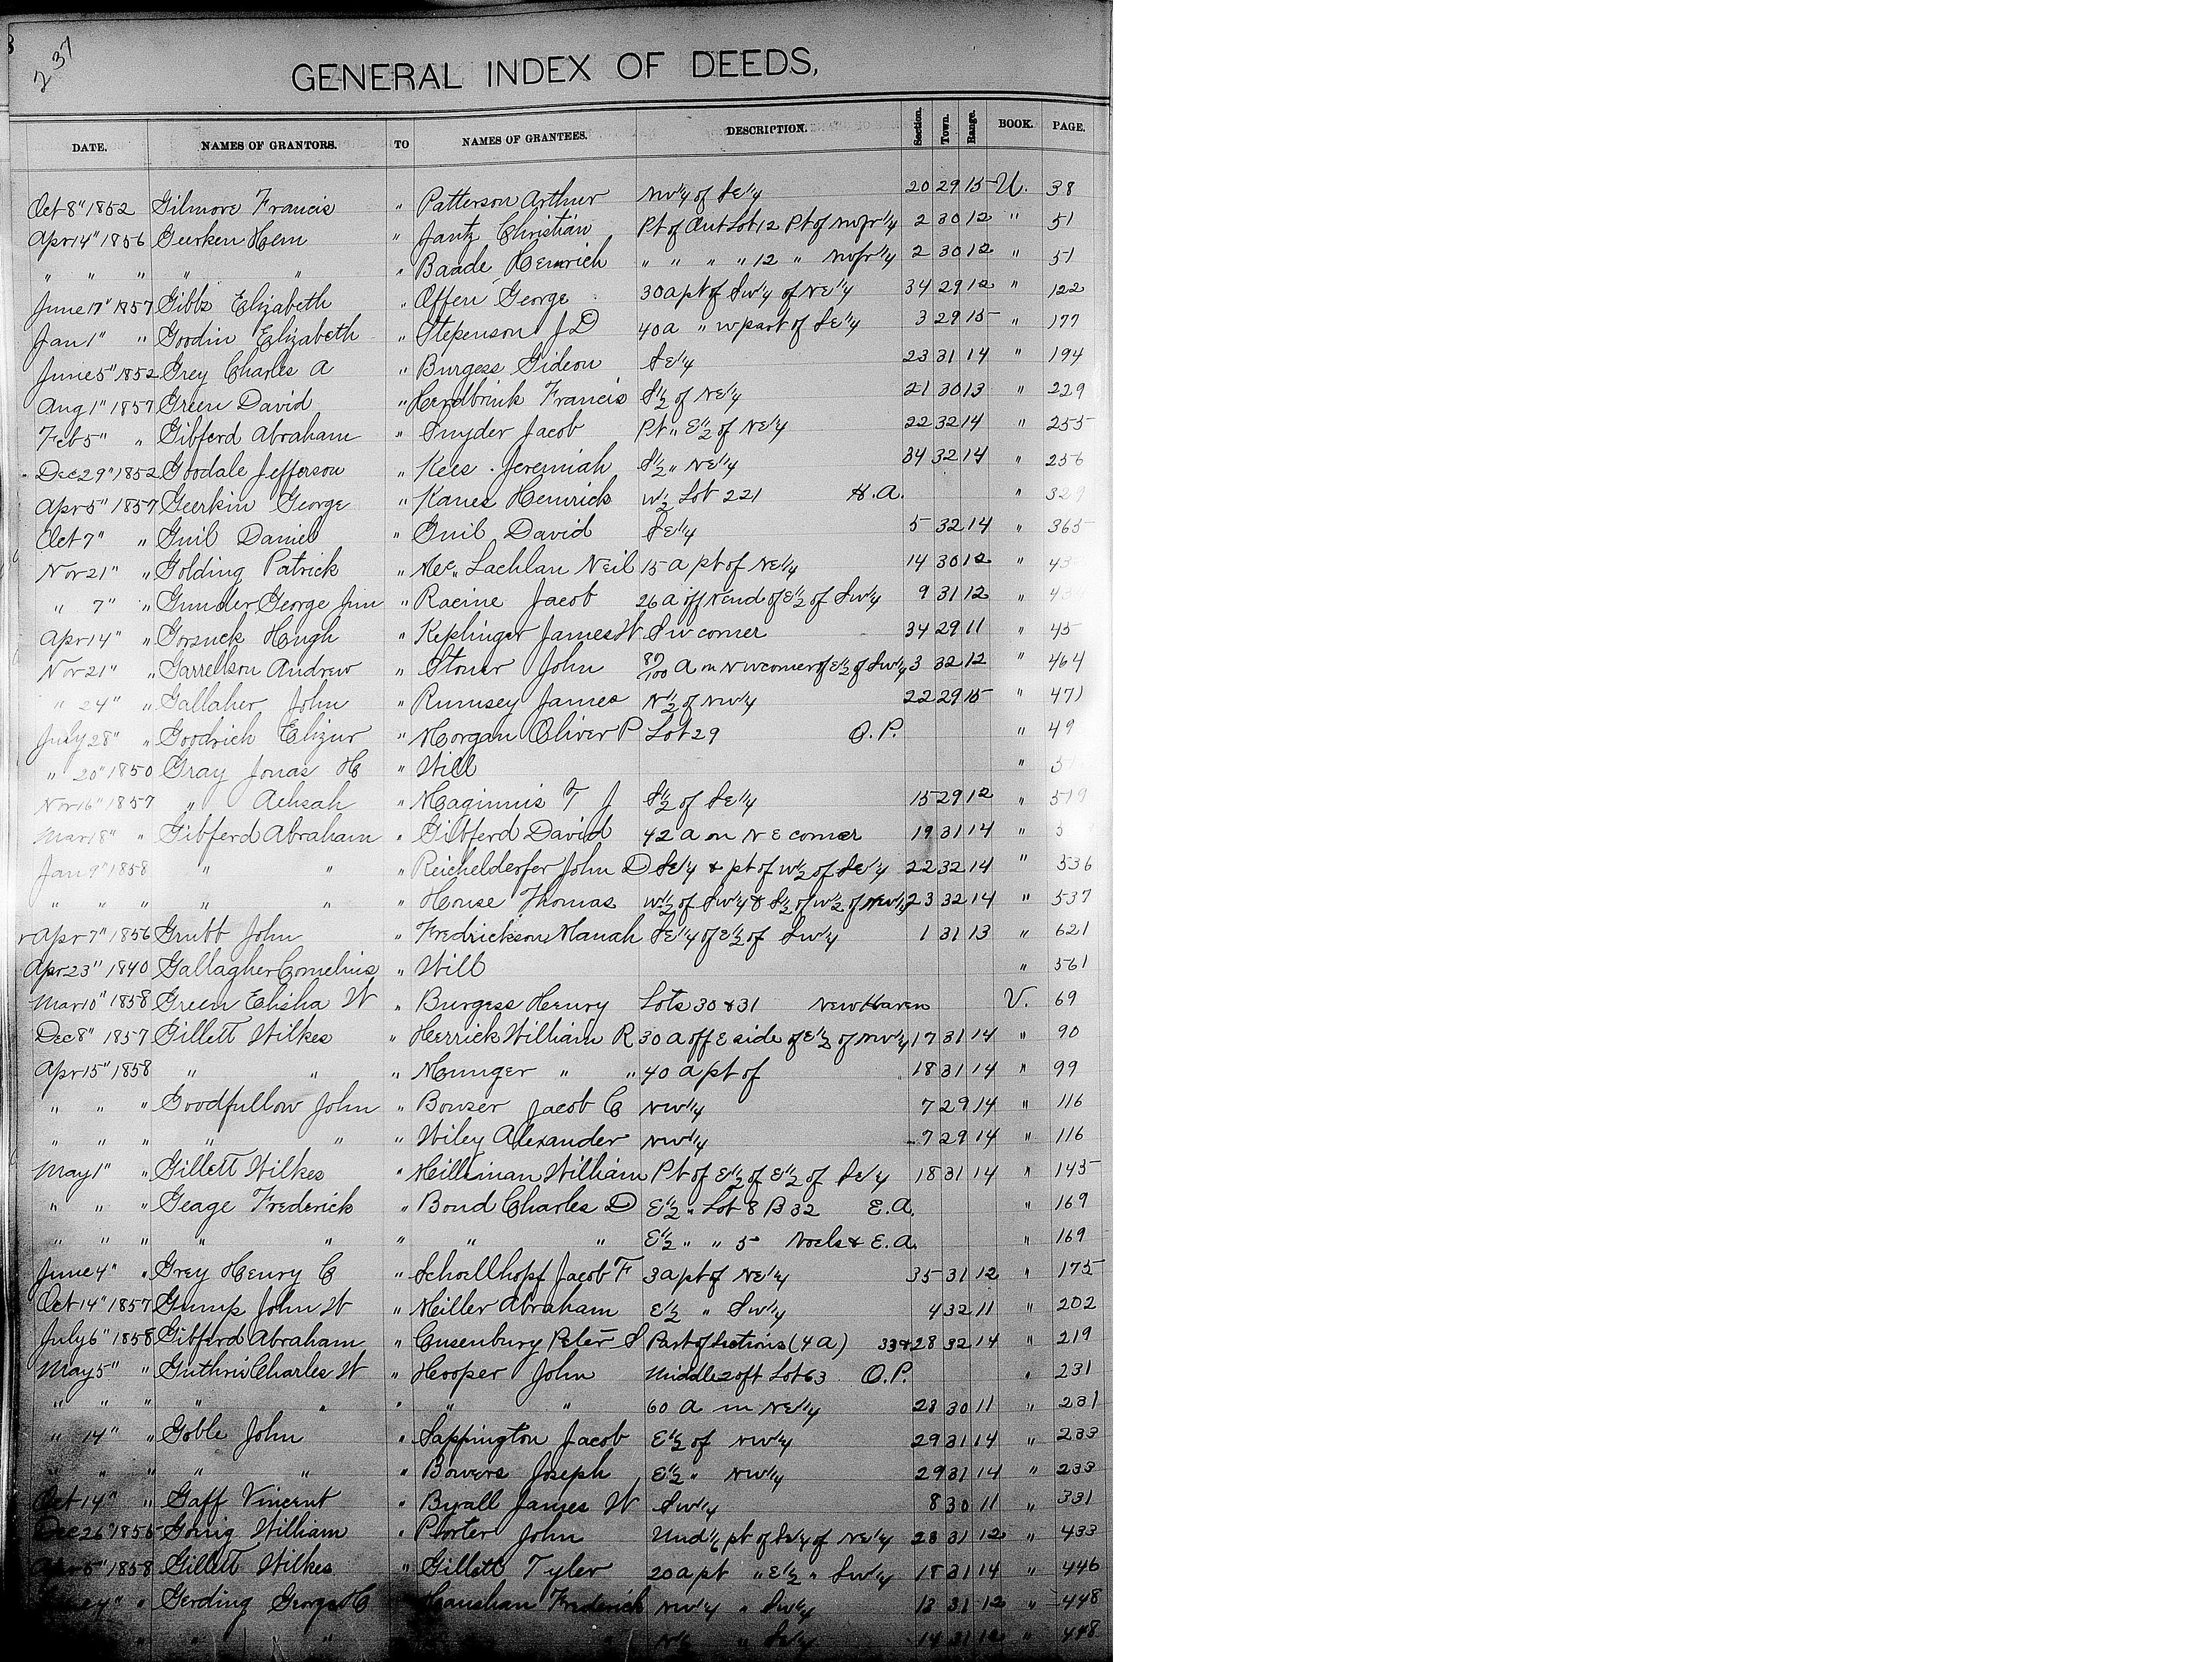 237
GENERAL INDEX OF DEEDS,
DATE. NAMES OF GRANTORS. TO NAMES OF GRANTEES. DESCRIPTION. Section. Town. Range. BOOK. PAGE.
Oct 8" 1852 Gilmore Francis " Patterson Arthur NW 1/4 of SE 1/4 20 29 15 U. 38
Apr 14" 1856 Geerken Hem " Jantz Christian Pt of Out Lot 12 Pt of NW fr 1/4 2 30 12 " 51
" " " " " " Baade Heinrich " " " " 12 " NW fr 1/4 2 30 12 " 51
June 17" 1857 Gibbs Elizabeth " Offen George 30 a pt of SW 1/4 of NE 1/4 34 29 12 " 122
Jan 1" " Goodin Elizabeth " Stepenson J D 40 a " W part of SE 1/4 3 29 15 " 177
June 5" 1852 Grey Charles A " Burgess Gideon SE 1/4 23 31 14 " 194
Aug 1" 1857 Green David " Herdbrink Francis S 1/2 of NE 1/4 21 30 13 " 229
Feb 5" " Gibferd Abraham " Snyder Jacob Pt " E 1/2 of NE 1/4 22 32 14 " 255
Dec 29" 1852 Goodale Jefferson " Kees Jeremiah S 1/2 " NE 1/4 34 32 14 " 256
Apr 5" 1857 Geerkin George " Kanes Heinrick W 1/2 Lot 221 H. A. " 329
Oct 7" " Guil Daniel " Guil David SE 1/4 5 32 14 " 365
Nov 21" " Golding Patrick " Mc" Lachlan Neil 15 a pt of NE 1/4 14 30 12 " 43
" 7" " Gunder George Jun " Racine Jacob 26 a off N end of E 1/2 of SW 1/4 9 31 12 " 43
Apr 14" " Gorsuck Hugh " Keplinger James W SW corner 34 29 11 " 45
Nov 21" " Garrellson Andrew " Stoner John 87/100 A in NW corner of E 1/2 of SW 1/4 3 32 12 " 464
" 24" " Gallaher John " Rumsey James N 1/2 of NW 1/4 22 29 15 " 471
July 28" " Goodrich Elizur " Morgan Oliver P Lot 29 O. P. " 49
" 20" 1850 Gray Jonas H " Will " 5
Nov 16" 1857 " Achsah " Maginnis T J S 1/2 of SE 1/4 15 29 12 " 519
Mar 18" " Gibferd Abraham " Gibferd David 42 a on NE corner 19 31 14 " 5
Jan 9" 1858 " " " Reichelderfer John D SE 1/4 & pt of W 1/2 of SE 1/4 22 32 14 " 536
" " " " " " House Thomas W 1/2 of SW 1/4 & S 1/2 of W 1/2 of NW 1/4 23 32 14 " 537
Apr 7" 1856 Grubb John " Fredrickson Manah SE 1/4 of E 1/2 of SW 1/4 1 31 13 " 621
Apr 23" 1840 Gallagher Cornelius " Will " 561
Mar 10" 1858 Green Elisha W " Burgess Henry Lots 30 & 31 New Haven V. 69
Dec 8" 1857 Gillett Wilkes " Herrick William R 30 a off E side of E 1/2 of NW 1/4 17 31 14 " 90
Apr 15" 1858 " " " Munger " " 40 a pt of 18 31 14 " 99
" " " Goodfellow John " Bowser Jacob C NW 1/4 7 29 14 " 116
" " " " " " Wiley Alexander NW 1/4 7 29 14 " 116
May 1" " Gillett Wilkes " Milliman William Pt of E 1/2 of E 1/2 of SE 1/4 18 31 14 " 145
" " " Geage Frederick " Bond Charles D E 1/2 " Lot 8 B 32 E. A. " 169
" " " " " " " " E 1/2 " " 5 E. A. " 169
June 4" " Grey Henry C " Schoellhopf Jacob F 3 a pt of NE 1/4 35 31 12 " 175
Oct 14" 1857 Gump John W " Miller Abraham E 1/2 " SW 1/4 4 32 11 " 202
July 6" 1858 Gibferd Abraham " Cusenbury Peter S Part of Sections (4 a) 33 & 28 32 14 " 219
May 5" " Guthrie Charles W " Hooper John Middle 20 ft Lot 63 O. P. " 231
" " " " " " " " 60 a in NE 1/4 28 30 11 " 231
" 14" " Goble John " Sappington Jacob E 1/2 of NW 1/4 29 31 14 " 233
" " " " " " Bowers Joseph E 1/2 " NW 1/4 29 31 14 " 233
Oct 14" " Gaff Vincent " Byall James W SW 1/4 8 30 11 " 331
Dec 26" 1855 Going William " Porter John Und 1/6 pt of SE 1/4 of NE 1/4 28 31 12 " 433
Apr 5" 1858 Gillett Wilkes " Gillett Tyler 20 a pt " E 1/2 " SW 1/4 18 31 14 " 446
4" " Gerding George H " Frederick NW 1/4 " SW 1/4 13 31 12 " 448
" " " N 1/2 " SE 1/4 14 31 12 " 448